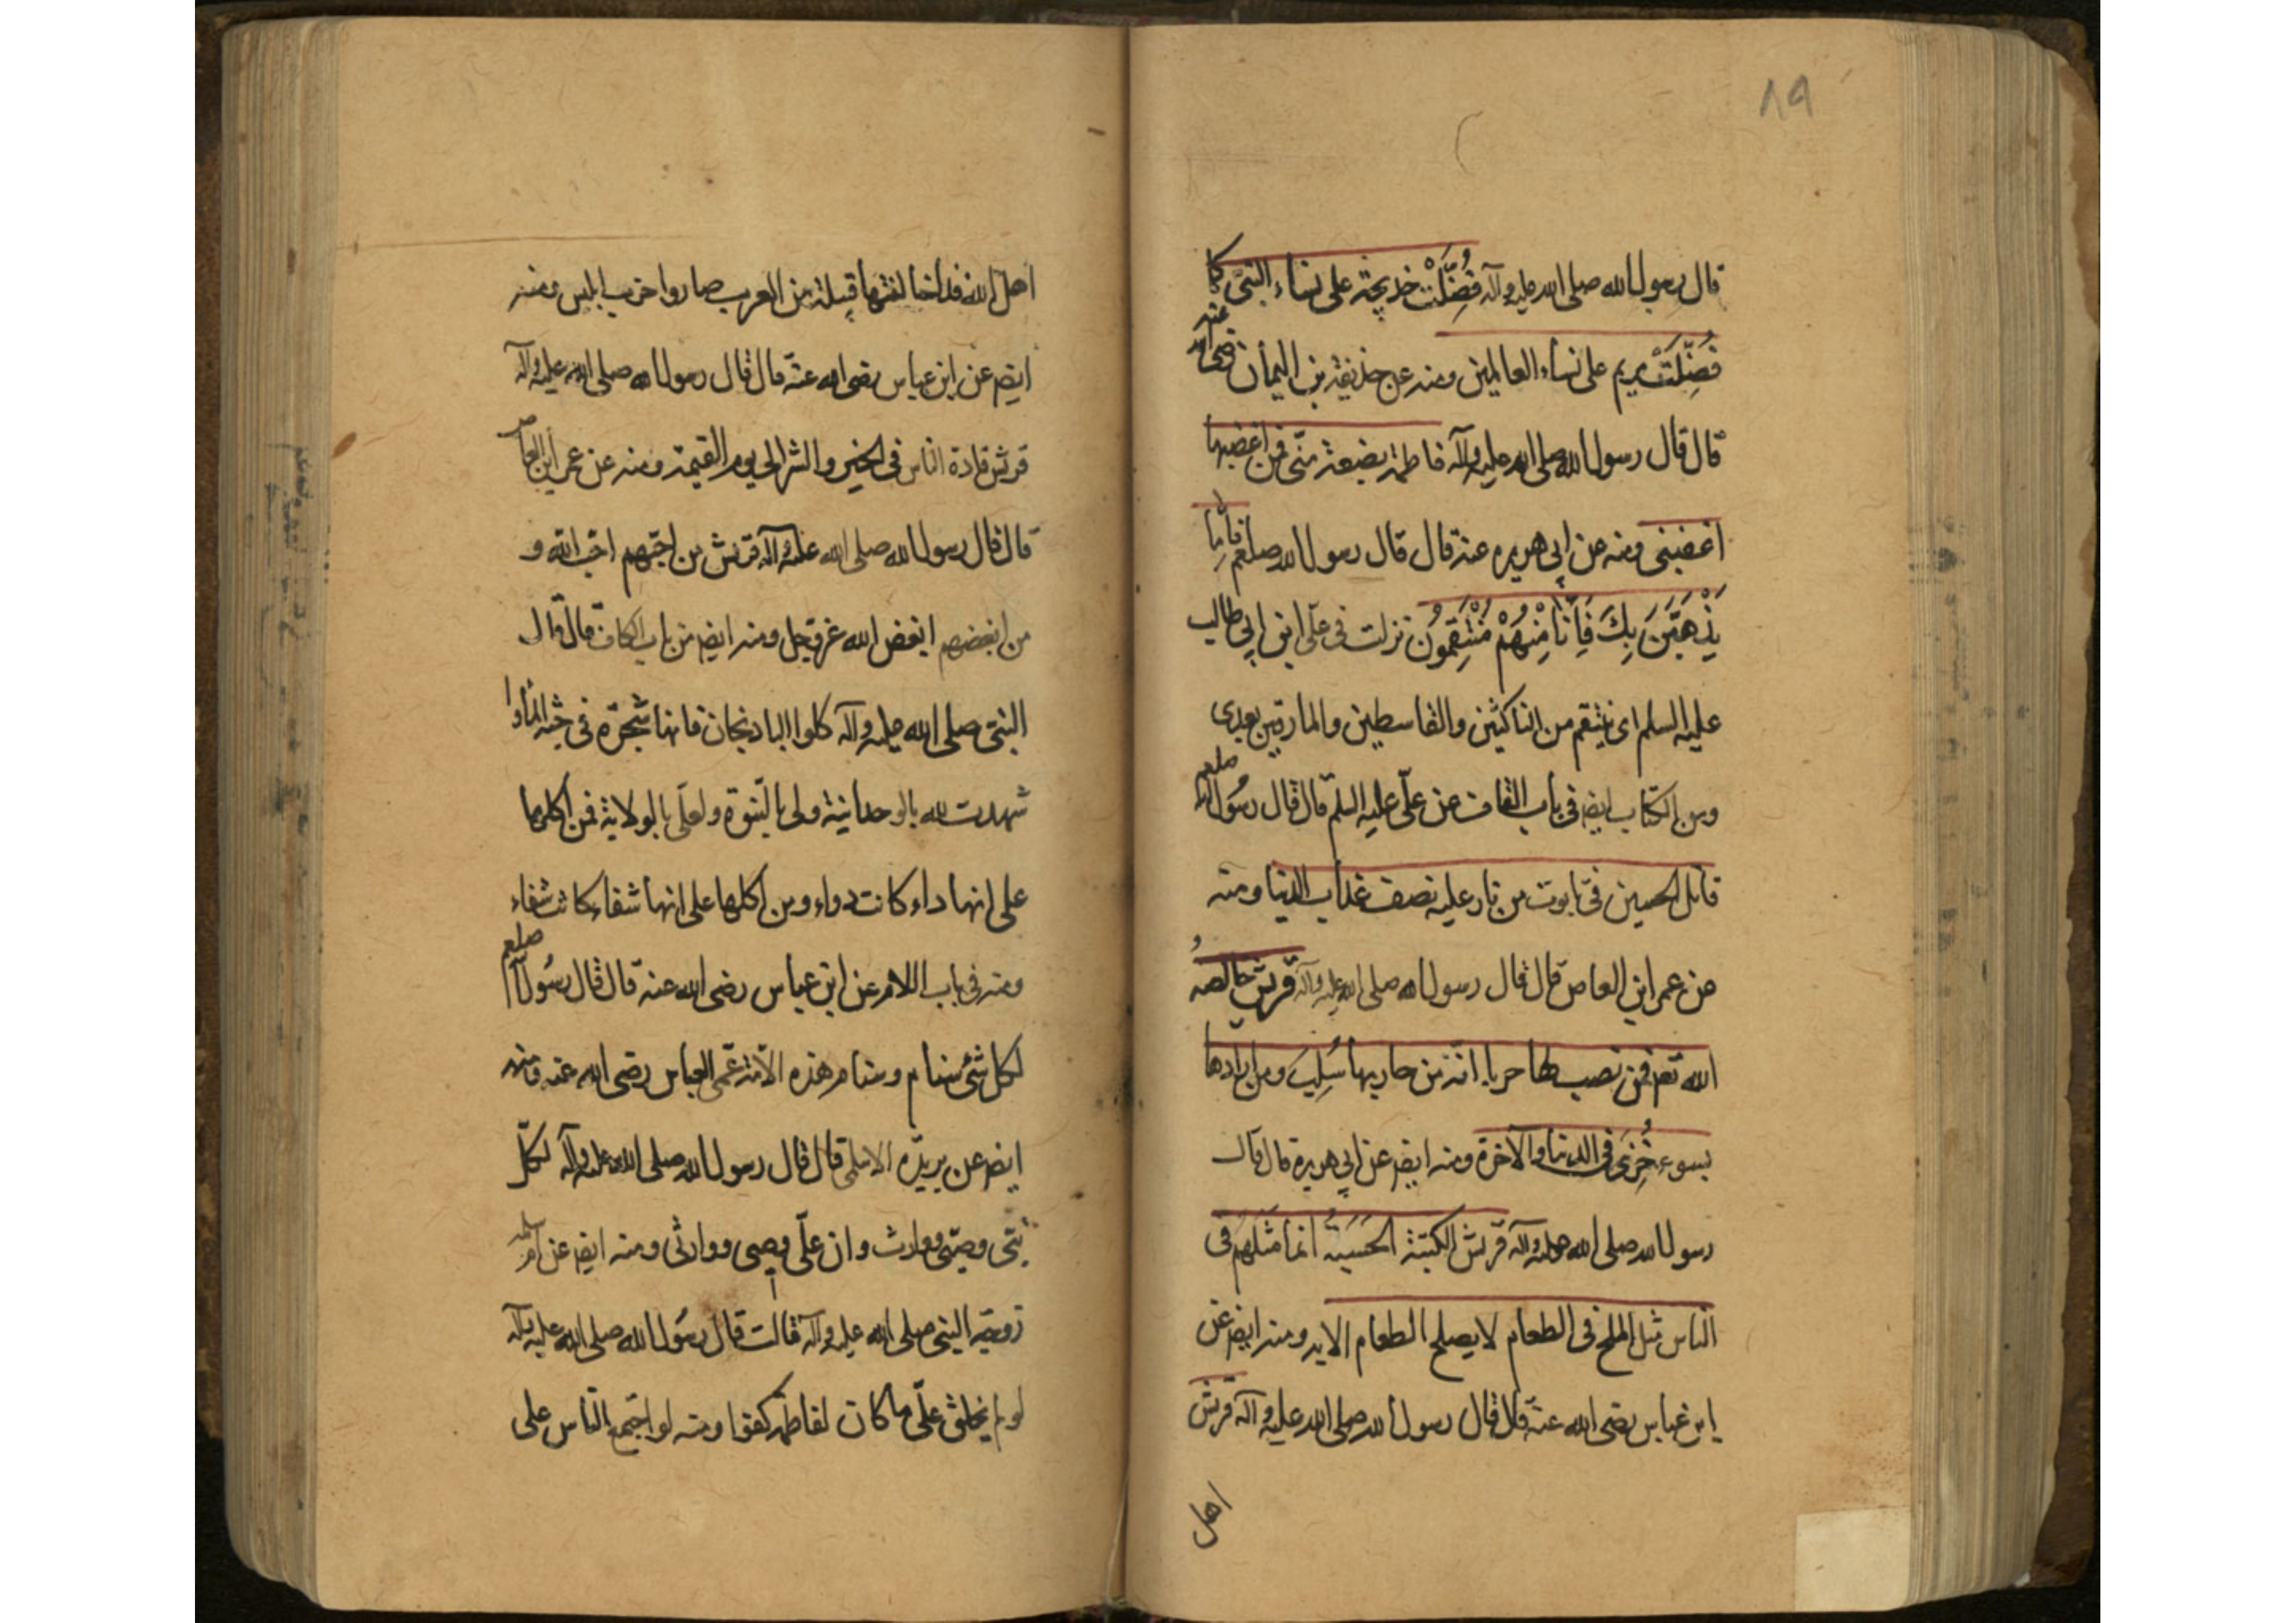 ٨٩
قال رسول الله صلى الله عليه وآله فُضِّلَتْ خديجة على نساء النبي كما
فُضِّلَتْ مريم على نساء العالمين ومنه عن حذيفة بن اليمان رضى الله عنه
قال قال رسول الله صلى الله عليه وآله فاطمة بضعة منّى فمن اغضبها
اغضبنى ومنه عن ابى هريره عنه قال قال رسول الله صلعم فَإِمّا
نَذْهَبَّنَ بِكَ فَإِنّا مِنْهُمْ مُنْتَقِمُونَ نزلت فى علّى ابن ابى طالب
عليه السلم اى ينتقم من الناكثين والقاسطين والمارقين بعدى
ومن الكتاب ايضا فى باب القاف عن علّى عليه السلم قال قال رسُول الله صلعم
قاتل الحسين فى تابوت من نار عليه نصف عذاب الدنيا ومنه
عن عمر ابن العاص قال قال رسول الله صلى الله عليه وآله قريش خالصةُ
الله تعم فمن نصب لها حربا انّه من حاربها سُلِبَ ومن ارادها
بسوء خُزِىَ فى الدنيا والآخرة ومنه ايضا عن ابى هريرة قال قال
رسول الله صلى الله عليه وآله قريش الكتبة الحَسَبَةُ انما مَثَلهُم فى
الناس مثل الملح فى الطعام لا يصلح الطعام الا به ومنه ايضا عن
ابن عباس رضى الله عنه قال قال رسول الله صلى الله عليه وآله قريش
اهل
اهل الله فاذا خالفتها قبيلة من العرب صاروا حزب ابليس ومنه
ايضا عن ابن عباس رضى الله عنه قال قال رسول الله صلى الله عليه وآله
قريش قادة الناس فى الخير والشر الى يوم القيمة ومنه عن عمر ابن العاص
قال قال رسول الله صلى الله عليه وآله قريش من احبّهم احبّ الله و
من ابغضهم ابغض الله عز وجل ومنه ايضا من باب الكاف قال قال
النبى صلى الله عليه وآله كلوا البادنجان فانها شجرة فى جنة المأوا
شهدت لله بالوحدانية ولى بالنبوة ولعلّى بالولاية فمن اكلها
على انها داء كانت دواء ومن اكلها على انها شفاء كانت شفاء
ومنه فى باب اللام عن ابن عباس رضى الله عنه قال قال رسُول الله صلعم
لكل شئ سنام وسنام هذه الامّة عمّى العباس رضى الله عنه ومنه
ايضا عن بريدّه الاسلمى قال قال رسول الله صلى الله عليه وآله لكلّ
نبى وصىّ ووارث وان علّى وصيى ووارثى ومنه ايضا عن ام سلمه
زوجة النبى صلى الله عليه وآله قالت قال رسُول الله صلى الله عليه وآله
لو لم يخلق علّى ما كان لفاطمة كفوا ومنه لو اجتمع الناس على